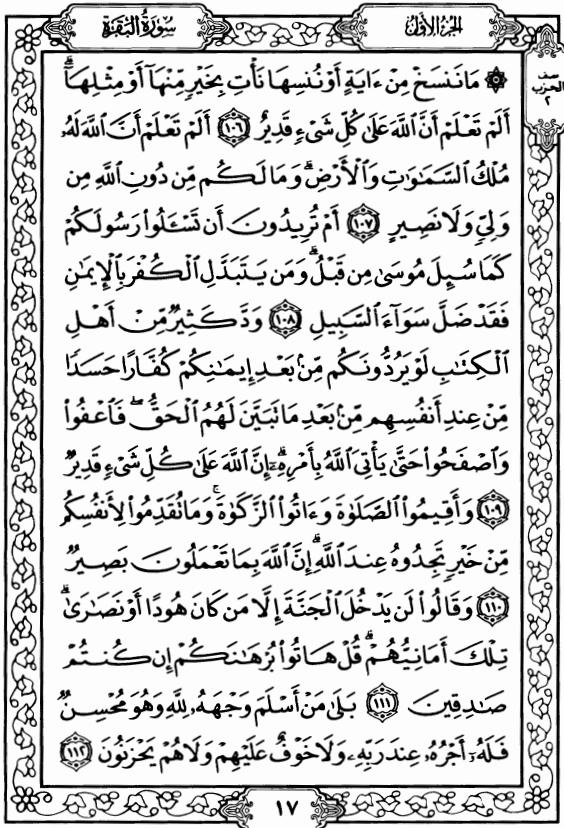 سُورَةُ البَقَرَةِ
الجُزءُ الأَوَّلُ
نصف
الحزب
٢
۞ مَا نَنسَخْ مِنْ ءَايَةٍ أَوْ نُنسِهَا نَأْتِ بِخَيْرٍ مِّنْهَآ أَوْ مِثْلِهَآ ۗ
أَلَمْ تَعْلَمْ أَنَّ ٱللَّهَ عَلَىٰ كُلِّ شَىْءٍ قَدِيرٌ ١٠٦ أَلَمْ تَعْلَمْ أَنَّ ٱللَّهَ لَهُۥ
مُلْكُ ٱلسَّمَـٰوَٰتِ وَٱلْأَرْضِ ۗ وَمَا لَكُم مِّن دُونِ ٱللَّهِ مِن
وَلِىٍّ وَلَا نَصِيرٍ ١٠٧ أَمْ تُرِيدُونَ أَن تَسْـَٔلُوا۟ رَسُولَكُمْ
كَمَا سُئِلَ مُوسَىٰ مِن قَبْلُ ۗ وَمَن يَتَبَدَّلِ ٱلْكُفْرَ بِٱلْإِيمَـٰنِ
فَقَدْ ضَلَّ سَوَآءَ ٱلسَّبِيلِ ١٠٨ وَدَّ كَثِيرٌ مِّنْ أَهْلِ
ٱلْكِتَـٰبِ لَوْ يَرُدُّونَكُم مِّنۢ بَعْدِ إِيمَـٰنِكُمْ كُفَّارًا حَسَدًا
مِّنْ عِندِ أَنفُسِهِم مِّنۢ بَعْدِ مَا تَبَيَّنَ لَهُمُ ٱلْحَقُّ ۖ فَٱعْفُوا۟
وَٱصْفَحُوا۟ حَتَّىٰ يَأْتِىَ ٱللَّهُ بِأَمْرِهِۦٓ ۗ إِنَّ ٱللَّهَ عَلَىٰ كُلِّ شَىْءٍ قَدِيرٌ
١٠٩ وَأَقِيمُوا۟ ٱلصَّلَوٰةَ وَءَاتُوا۟ ٱلزَّكَوٰةَ ۚ وَمَا تُقَدِّمُوا۟ لِأَنفُسِكُم
مِّنْ خَيْرٍ تَجِدُوهُ عِندَ ٱللَّهِ ۗ إِنَّ ٱللَّهَ بِمَا تَعْمَلُونَ بَصِيرٌ
١١٠ وَقَالُوا۟ لَن يَدْخُلَ ٱلْجَنَّةَ إِلَّا مَن كَانَ هُودًا أَوْ نَصَـٰرَىٰ ۗ
تِلْكَ أَمَانِيُّهُمْ ۗ قُلْ هَاتُوا۟ بُرْهَـٰنَكُمْ إِن كُنتُمْ
صَـٰدِقِينَ ١١١ بَلَىٰ مَنْ أَسْلَمَ وَجْهَهُۥ لِلَّهِ وَهُوَ مُحْسِنٌ
فَلَهُۥٓ أَجْرُهُۥ عِندَ رَبِّهِۦ وَلَا خَوْفٌ عَلَيْهِمْ وَلَا هُمْ يَحْزَنُونَ ١١٢
١٧